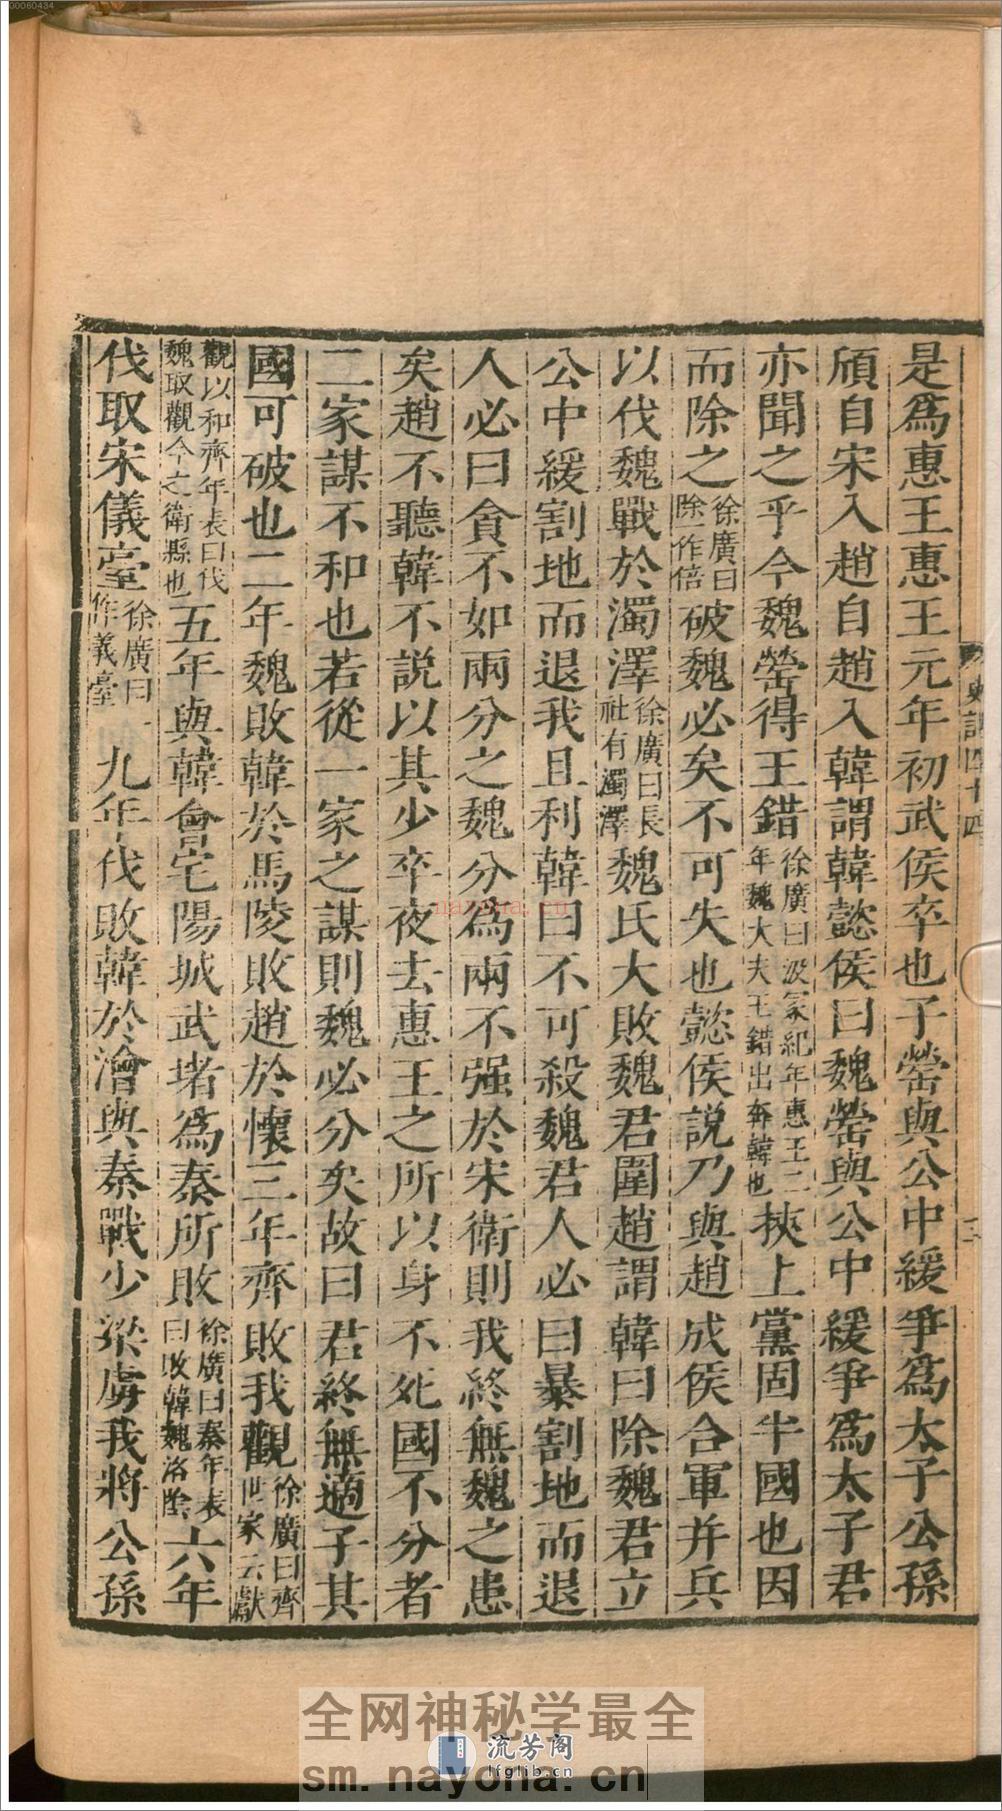 00060434
史記四十四
二
是爲惠王惠王元年初武侯卒也子罃與公中緩爭爲太子公孫
頎自宋入趙自趙入韓謂韓懿侯曰魏罃與公中緩爭爲太子君
亦聞之乎今魏罃得王錯徐廣曰汲冢紀年惠王二年魏大夫王錯出奔韓也挾上黨固半國也因
而除之徐廣曰除一作倍破魏必矣不可失也懿侯説乃與趙成侯合軍并兵
以伐魏戰於濁澤徐廣曰長社有濁澤魏氏大敗魏君圍趙謂韓曰除魏君立
公中緩割地而退我且利韓曰不可殺魏君人必曰暴割地而退
人必曰貪不如兩分之魏分爲兩不强於宋衛則我終無魏之患
矣趙不聽韓不説以其少卒夜去惠王之所以身不死國不分者
二家謀不和也若從一家之謀則魏必分矣故曰君終無適子其
國可破也二年魏敗韓於馬陵敗趙於懷三年齊敗我觀徐廣曰齊世家云獻
觀以和齊年表曰伐魏取觀今之衛縣也五年與韓會宅陽城武堵爲秦所敗徐廣曰秦年表曰敗韓魏洛陰六年
伐取宋儀臺徐廣曰一作義臺九年伐敗韓於澮與秦戰少梁虜我將公孫
nayona.cn
全网神秘学最全
流芳阁
lfglib.cn
sm.nayona.cn